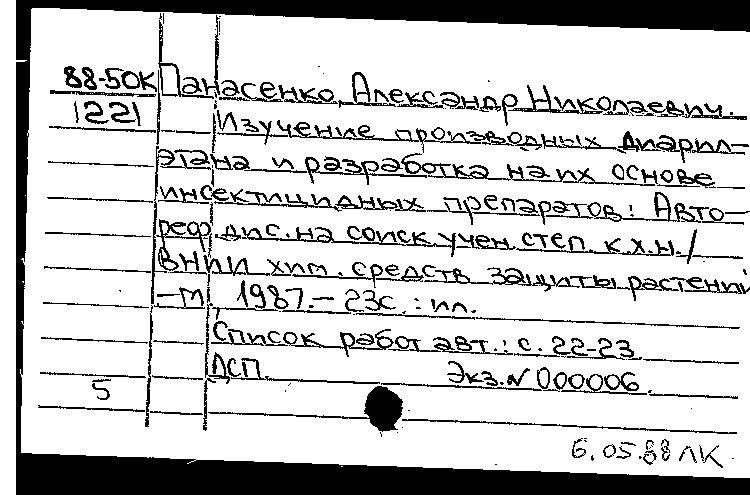 88-50К Панасенко, Александр Николаевич.
1221 Изучение производных диарил-
этана и разработка на их основе
инсектицидных препаратов: Авто-
реф. дис. на соиск. учен. степ. к.х.н./
ВНИИ хим. средств защиты растений
-М., 1987.- 23с. : ил.
Список работ авт.: с. 22-23
ДСП. Экз. N 000006.
5
6.05.88 ЛК